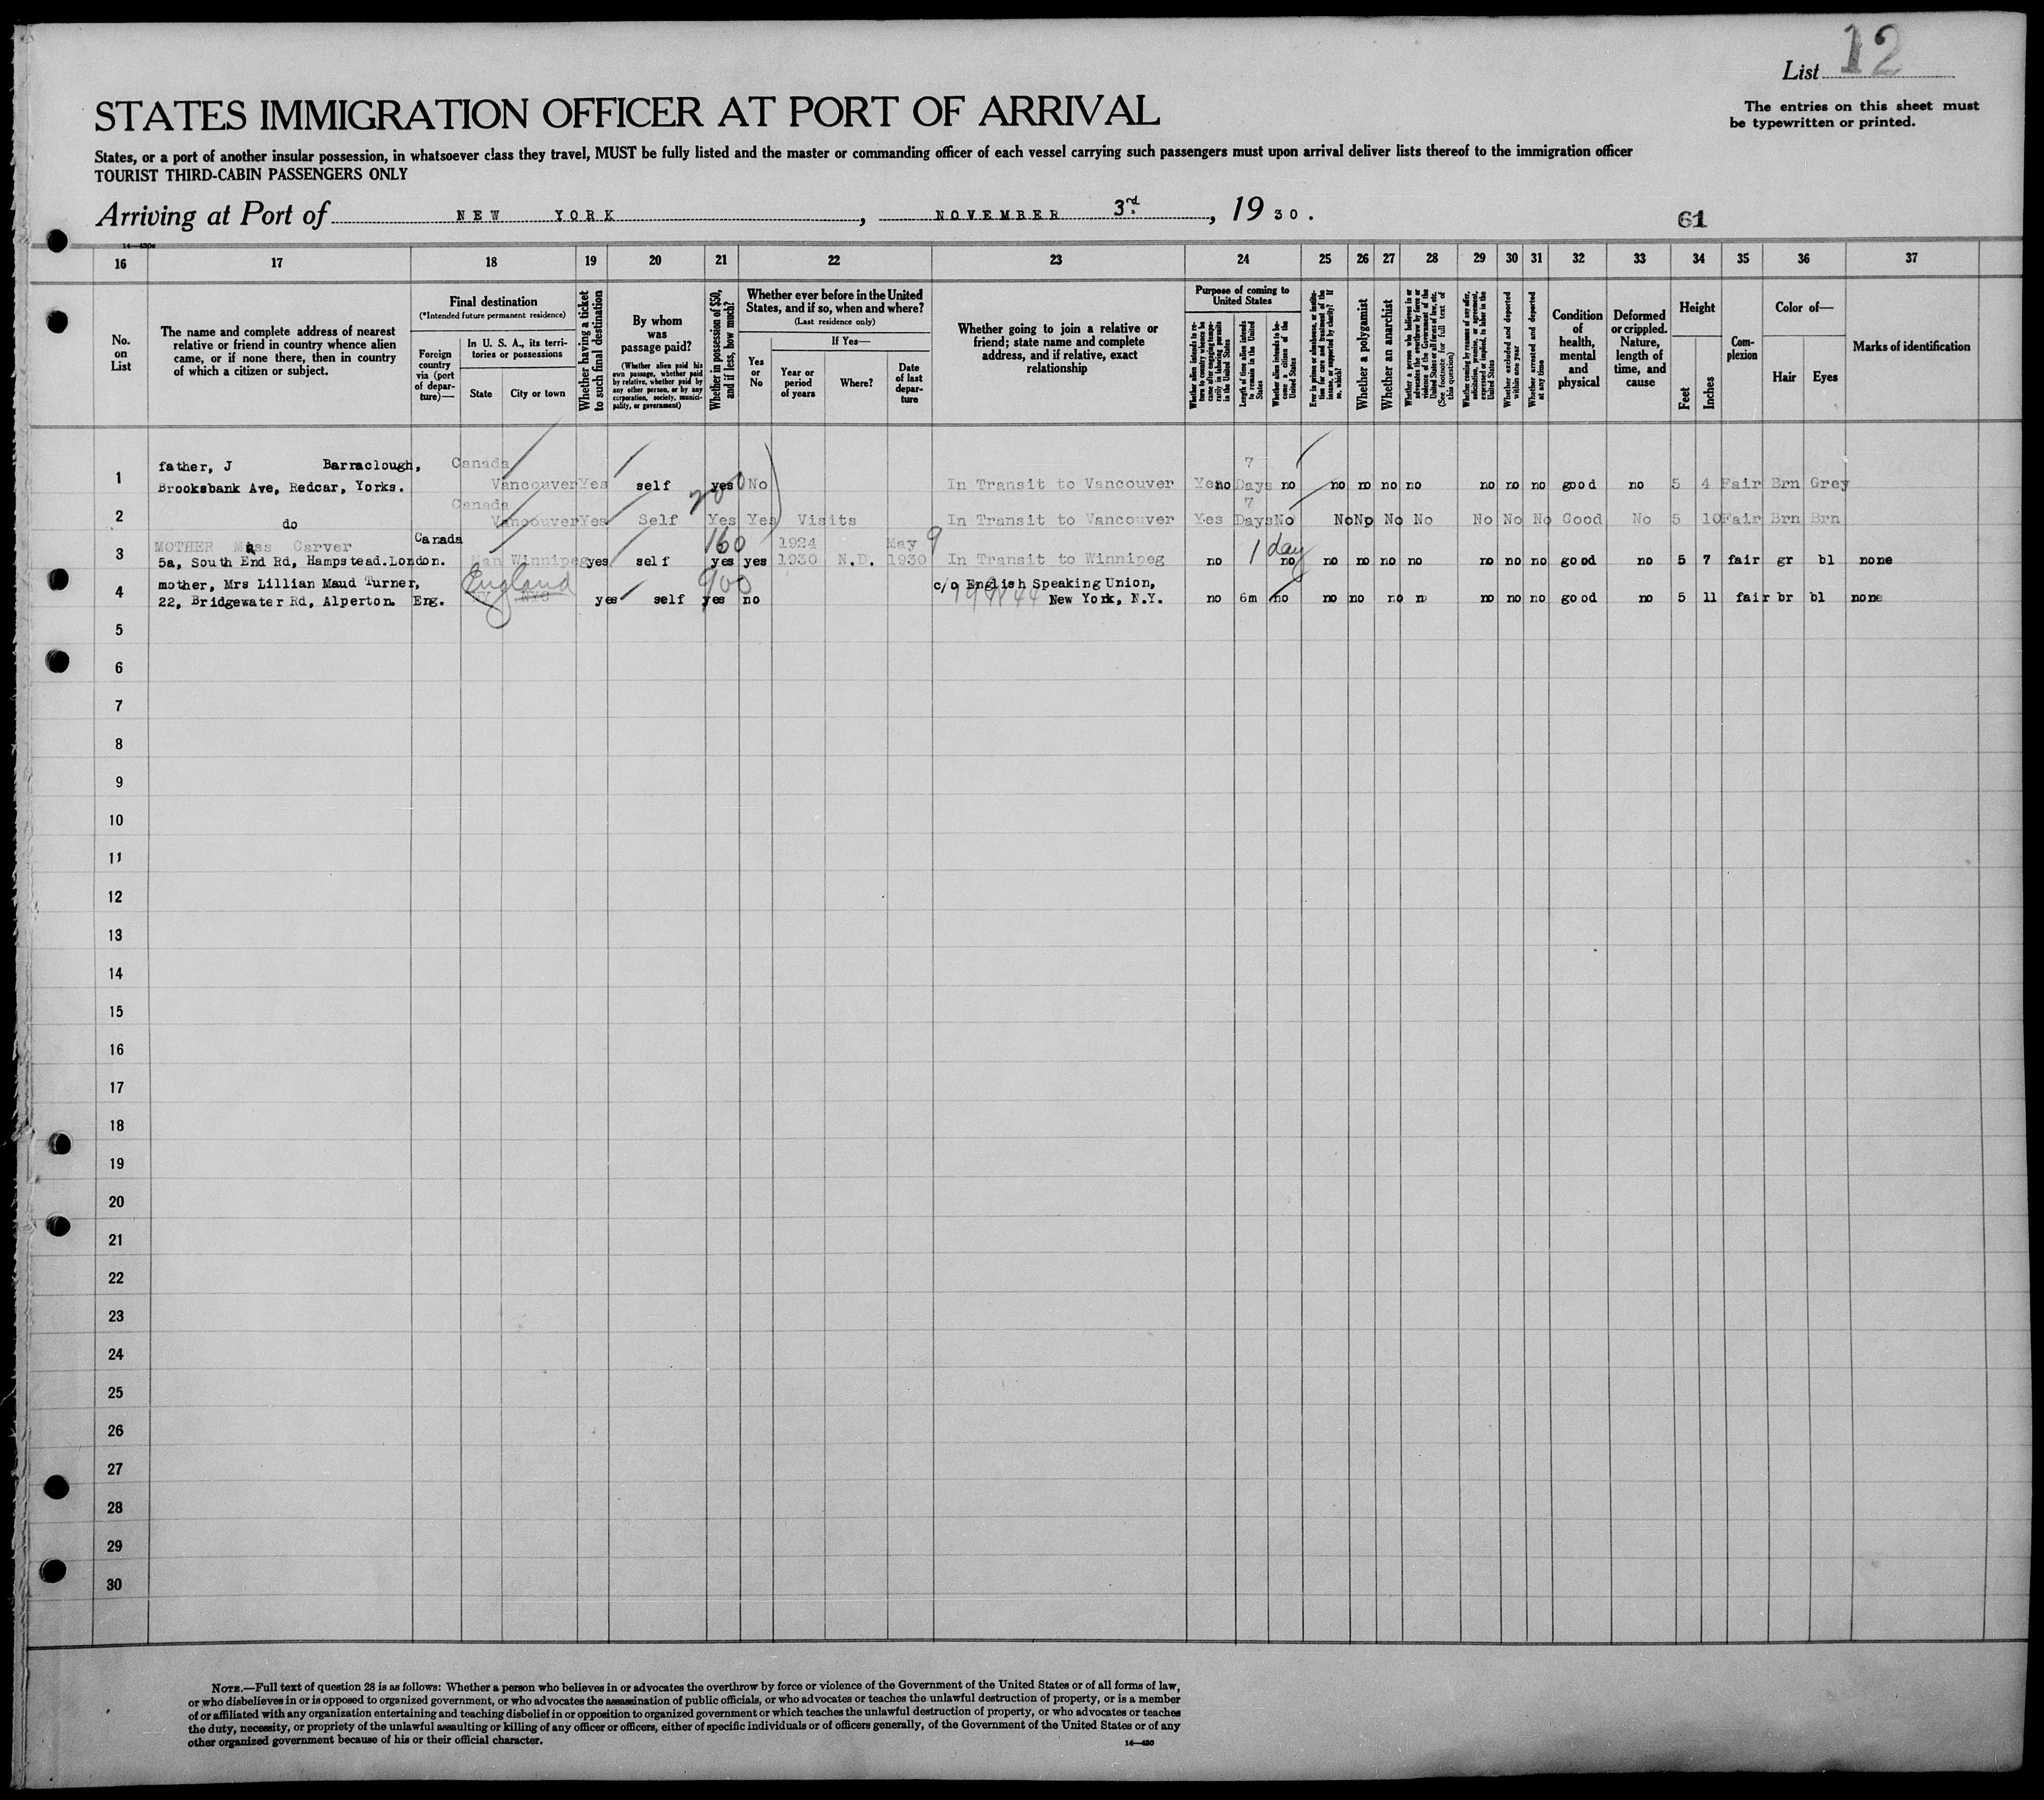 List 12
The entries on this sheet must
be typewritten or printed.
STATES IMMIGRATION OFFICER AT PORT OF ARRIVAL
States, or a port of another insular possession, in whatsoever class they travel, MUST be fully listed and the master or commanding officer of each vessel carrying such passengers must upon arrival deliver lists thereof to the immigration officer
TOURIST THIRD-CABIN PASSENGERS ONLY
Arriving at Port of NEW YORK, NOVEMBER 3rd, 1930.
61
16 17 18 19 20 21 22 23 24 25 26 27 28 29 30 31 32 33 34 35 36 37
No. on List
The name and complete address of nearest relative or friend in country whence alien came, or if none there, then in country of which a citizen or subject.
Final destination
(*Intended future permanent residence)
Foreign country via (port of departure)—
In U. S. A., its territories or possessions
State
City or town
Whether having a ticket to such final destination
By whom was passage paid?
(Whether alien paid his own passage, whether paid by relative, whether paid by any other person, or by any corporation, society, municipality, or government)
Whether in possession of $50, and if less, how much?
Whether ever before in the United States, and if so, when and where?
(Last residence only)
Yes or No
If Yes—
Year or period of years
Where?
Date of last departure
Whether going to join a relative or friend; state name and complete address, and if relative, exact relationship
Purpose of coming to United States
Whether alien intends to return to country whence he came after engaging temporarily in laboring pursuits in the United States
Length of time alien intends to remain in the United States
Whether alien intends to become a citizen of the United States
Ever in prison or almshouse, or institution for care and treatment of the insane, or supported by charity? If so, which?
Whether a polygamist
Whether an anarchist
Whether a person who believes in or advocates the overthrow by force or violence of the Government of the United States or all forms of law, etc. (See footnote for full text of this question)
Whether coming by reasons of any offer, solicitation, promise, or agreement, expressed or implied, to labor in the United States
Whether excluded and deported within one year
Whether arrested and deported at any time
Condition of health, mental and physical
Deformed or crippled. Nature, length of time, and cause
Height
Feet
Inches
Complexion
Color of—
Hair
Eyes
Marks of identification
father, J Barraclough, Canada 7
1 Brooksbank Ave, Redcar, Yorks. Vancouver Yes self yes No In Transit to Vancouver Yes no Days no no no no no no no no good no 5 4 Fair Brn Grey
Canada 7
2 do Vancouver Yes Self Yes Yes Visits In Transit to Vancouver Yes Days No No No No No No No No Good No 5 10 Fair Brn Brn
MOTHER Carver Canada 160 1924 May 9 1 day
3 5a, South End Rd, Hampstead.London. Man Winnipeg yes self yes yes 1930 N.D. 1930 In Transit to Winnipeg no no no no no no no no no good no 5 7 fair gr bl none
mother, Mrs Lillian Maud Turner, England 900 c/o English Speaking Union,
4 22, Bridgewater Rd, Alperton. Eng. NY NYC yes self yes no New York, N.Y. no 6m no no no no n no no no good no 5 11 fair br bl none
5
6
7
8
9
10
11
12
13
14
15
16
17
18
19
20
21
22
23
24
25
26
27
28
29
30
NOTE.—Full text of question 28 is as follows: Whether a person who believes in or advocates the overthrow by force or violence of the Government of the United States or of all forms of law,
or who disbelieves in or is opposed to organized government, or who advocates the assassination of public officials, or who advocates or teaches the unlawful destruction of property, or is a member
of or affiliated with any organization entertaining and teaching disbelief in or opposition to organized government or which teaches the unlawful destruction of property, or who advocates or teaches
the duty, necessity, or propriety of the unlawful assaulting or killing of any officer or officers, either of specific individuals or of officers generally, of the Government of the United States or of any
other organized government because of his or their official character.
14—430